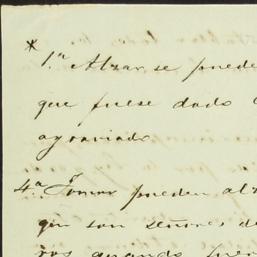 1.ª Alzar se puede
que fuese dado
agraviado
4.ª Tomar pueden al
que son señores de
ros quando fuer